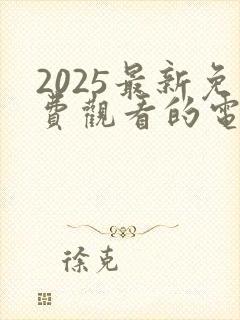 2025最新免
費觀看的電
徐克